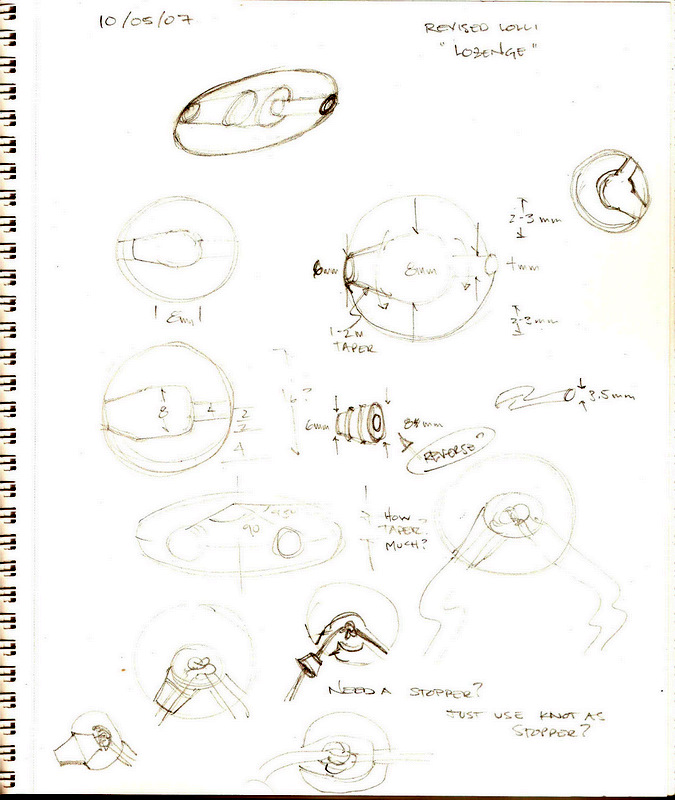 10/05/07
REVISED LOLLI
"LOZENGE"
2-3mm
6mm
8mm
4mm
8m
1-2m
TAPER
2-3mm
8
4
2
3
4
6?
6mm
8mm
3.5mm
REVERSE?
90
HOW
TAPER
MUCH?
NEED A STOPPER?
JUST USE KNOT AS
STOPPER?